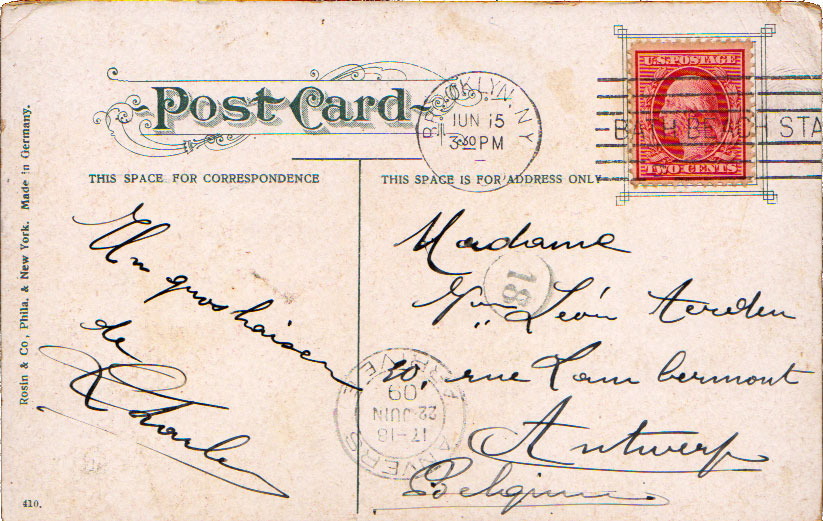 Post Card
BROOKLYN, N.Y.
JUN 15
3-30 PM
BATH BEACH STA
U.S. POSTAGE
TWO CENTS
THIS SPACE FOR CORRESPONDENCE
THIS SPACE IS FOR ADDRESS ONLY
Rosin & Co., Phila. & New York. Made in Germany.
Un gros baiser
de
Charles
Madame
Mme Léon
30, rue Lambermont
Antwerp
Belgium
18
ANVERS
17-18
22 JUIN
09
ARRIVEE
410.